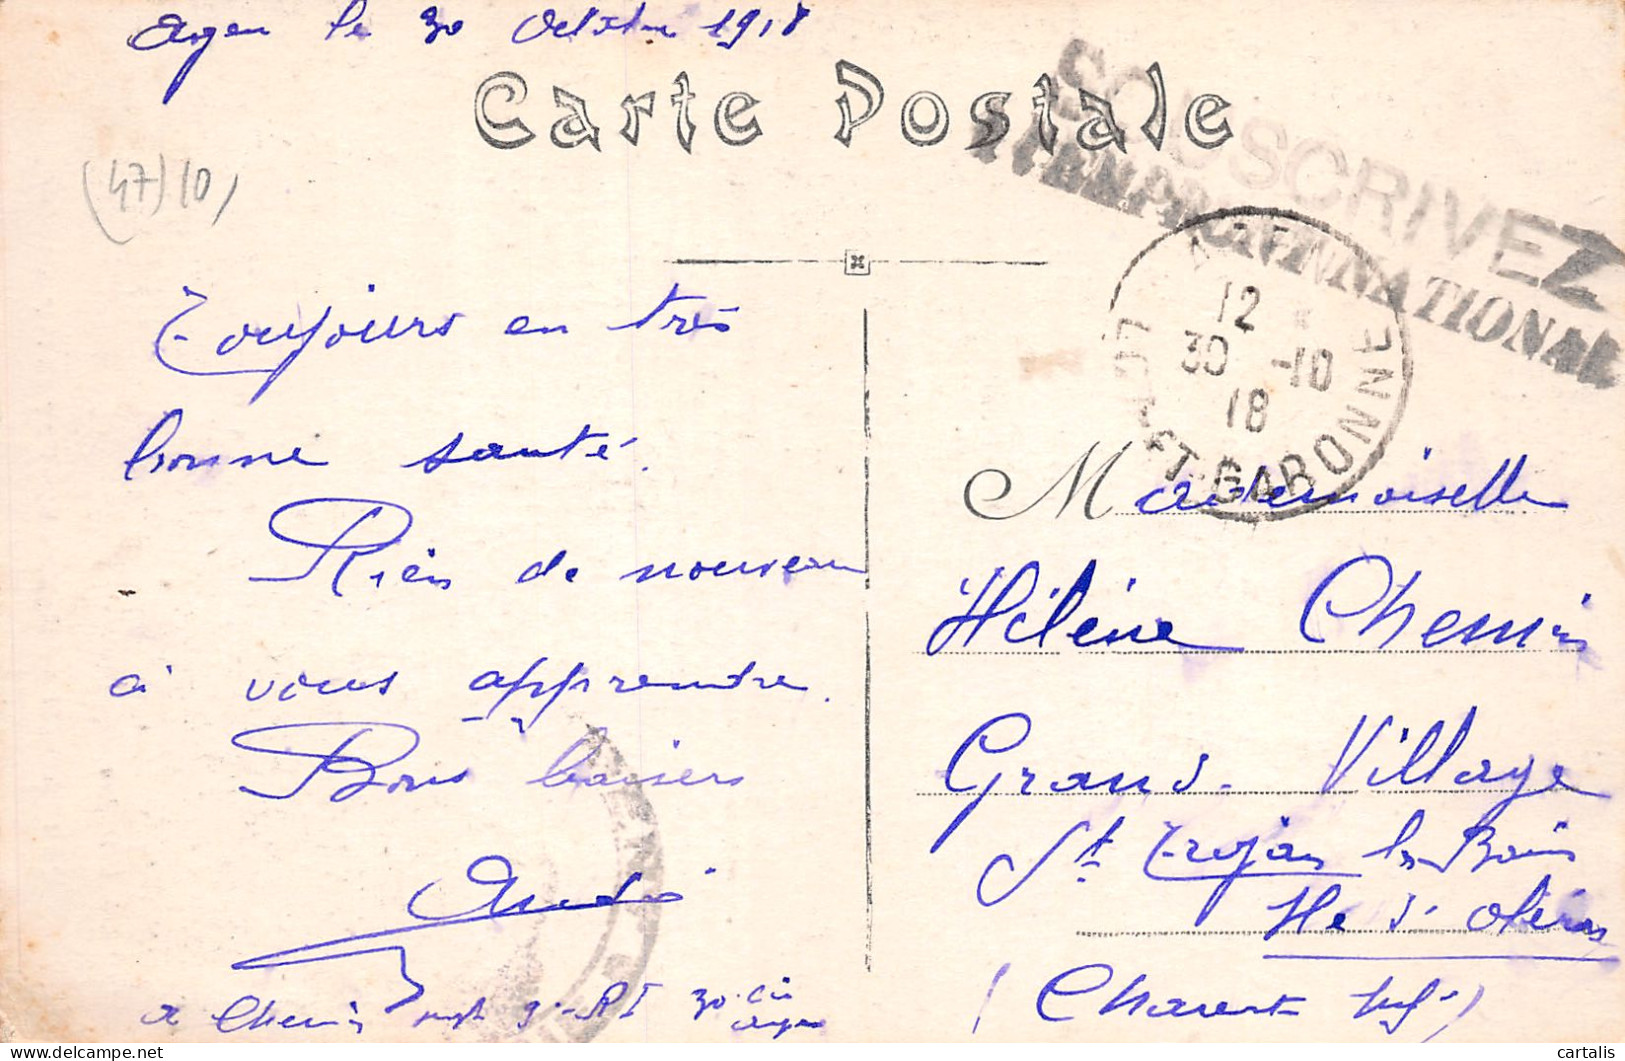 Agen le 30 Octobre 1918
Carte Postale
SOUSCRIVEZ
NATIONAL
(47)10)
12
30 -10
18
LOT-ET-GARONNE
Toujours en très
bonne santé.
Rien de nouveau
à vous apprendre.
Bons baisers
André
A Chemin 9e RI 30 Cie
Agen
Mademoiselle
Hélène Chemin
Grand-Village
St Trojan les Bains
Ile d'Oléron
(Charente Infre)
cartalis